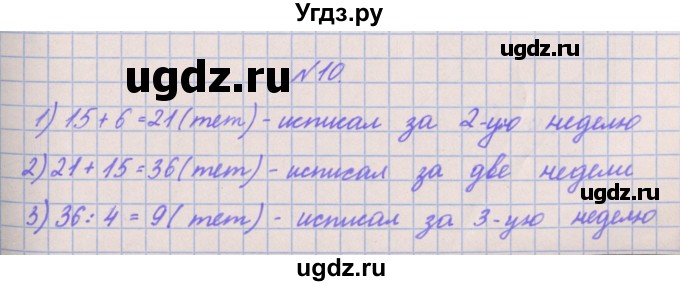 Угдз.ру
ugdz.ru
ugdz.ru
№10.
1) 15 + 6 = 21 (тет) - исписал за 2-ую неделю
2) 21 + 15 = 36 (тет) - исписал за две недели
3) 36 : 4 = 9 (тет) - исписал за 3-ую неделю
ugdz.ru
ugdz.ru